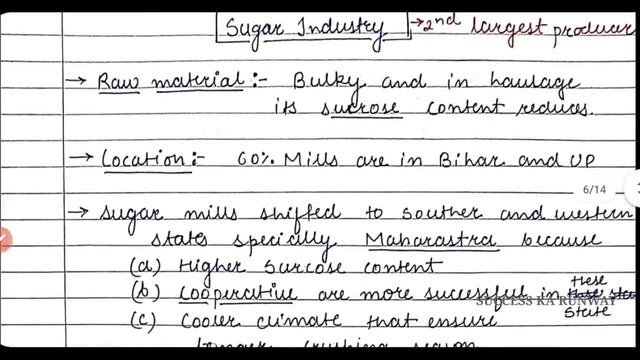 Sugar Industry →2nd largest producer
→ Raw material :- Bulky and in haulage
its sucrose content reduces.
→ Location :- 60% Mills are in Bihar and UP
6/14
→ Sugar mills shifted to Souther and western
states specially Maharastra because
(a) Higher Surcose content
these
(b) Cooperative are more successful in
SUCCESS KA RUNWAY
State
(c) Cooler climate that ensure
longer crushing season